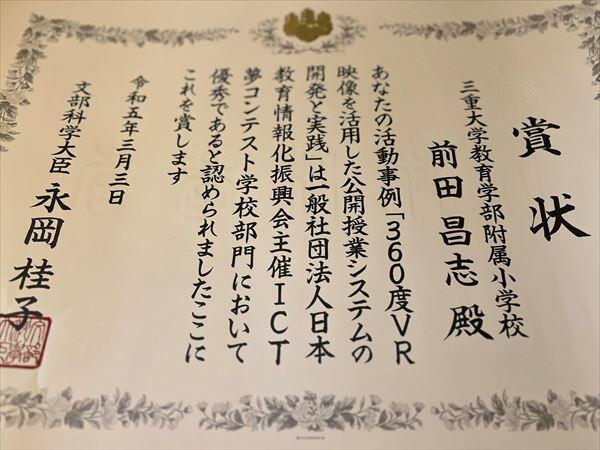 賞状
三重大学教育学部附属小学校
前田昌志殿
あなたの活動事例「360度VR
映像を活用した公開授業システムの
開発と実践」は一般社団法人日本
教育情報化振興会主催ICT
夢コンテスト学校部門において
優秀であると認められましたここに
これを賞します
令和五年三月三日
文部科学大臣 永岡桂子